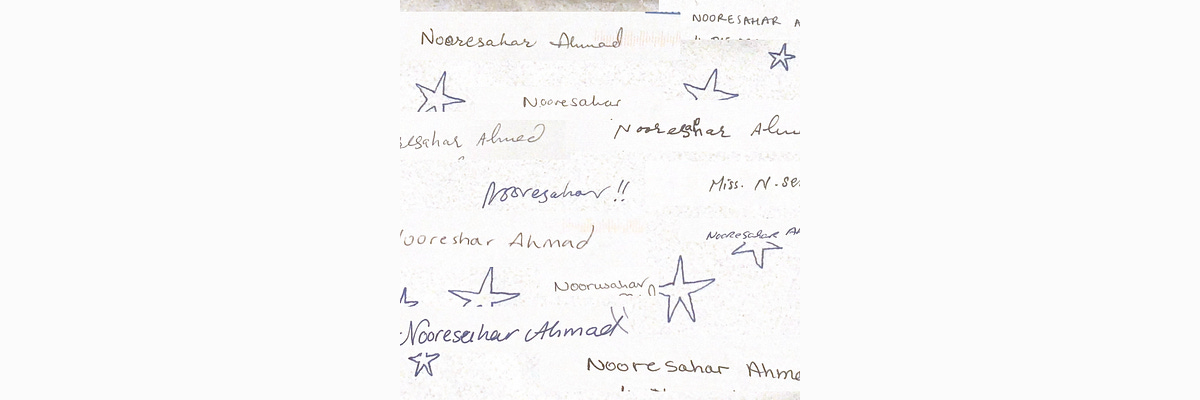 NOORESAHAR A
Nooresahar Ahmad
Nooresahar
resahar Ahmed
Nooresahar Ahm
Nooresahar!!
Miss. N. Se
Nooreshar Ahmad
Nooresahar Ah
Noorusahar
Nooresahar Ahmad
Nooresahar Ahma